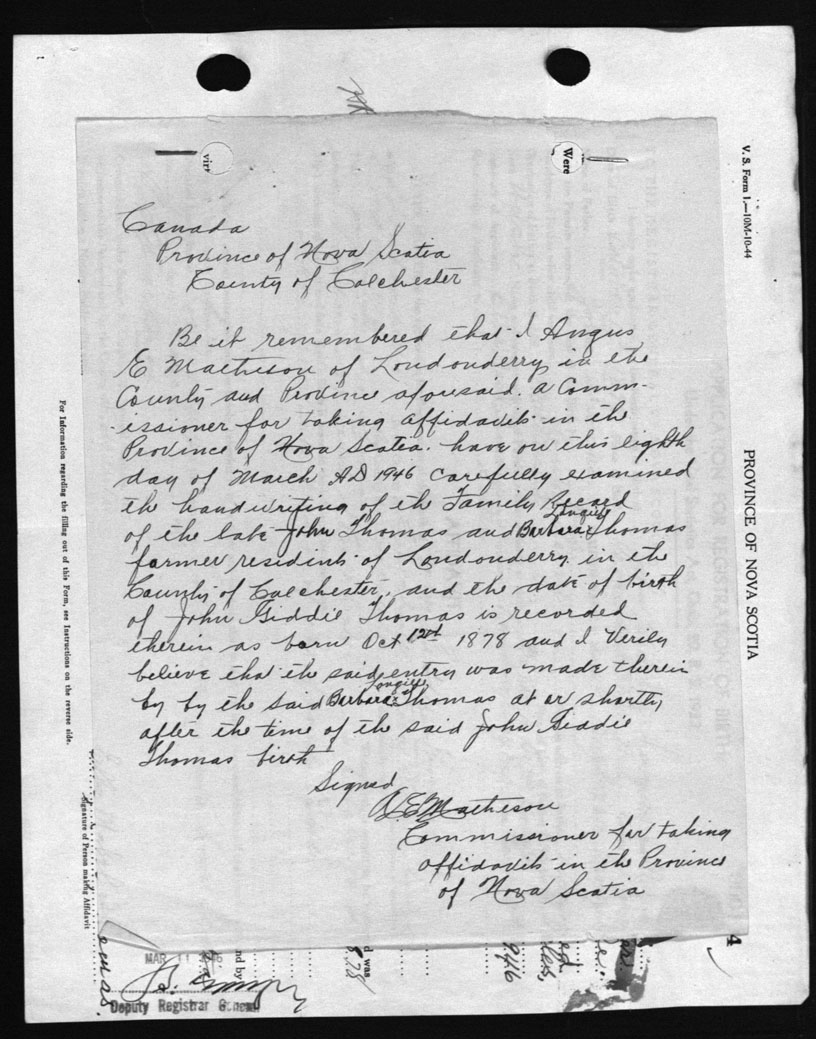 vir
Were
V. S. Form 1.—10M-10-44
PROVINCE OF NOVA SCOTIA
Canada
Province of Nova Scotia
County of Colchester
Be it remembered that I Angus
E Matheson of Londonderry in the
County and Province aforesaid. a Comm-
issioner for taking affidavits in the
Province of Nova Scotia. have on this eighth
day of March AD 1946 carefully examined
the handwriting of the Family Record
of the late John Thomas and Barbara Longill Thomas
former residents of Londonderry in the
County of Colchester, and the date of birth
of John Giddie Thomas is recorded
therein as born Oct 12th 1878 and I Verily
believe that the said entry was made therein
by by the said Barbara Longill Thomas at or shortly
after the time of the said John Giddie
Thomas birth
Signed
A E Matheson
Commissioner for taking
affidavits in the Province
of Nova Scotia
For Information regarding the filling out of this Form, see Instructions on the reverse side.
Signature of Person making Affidavit
MAR 11
Deputy Registrar General
nd by
d was
878
1946
4